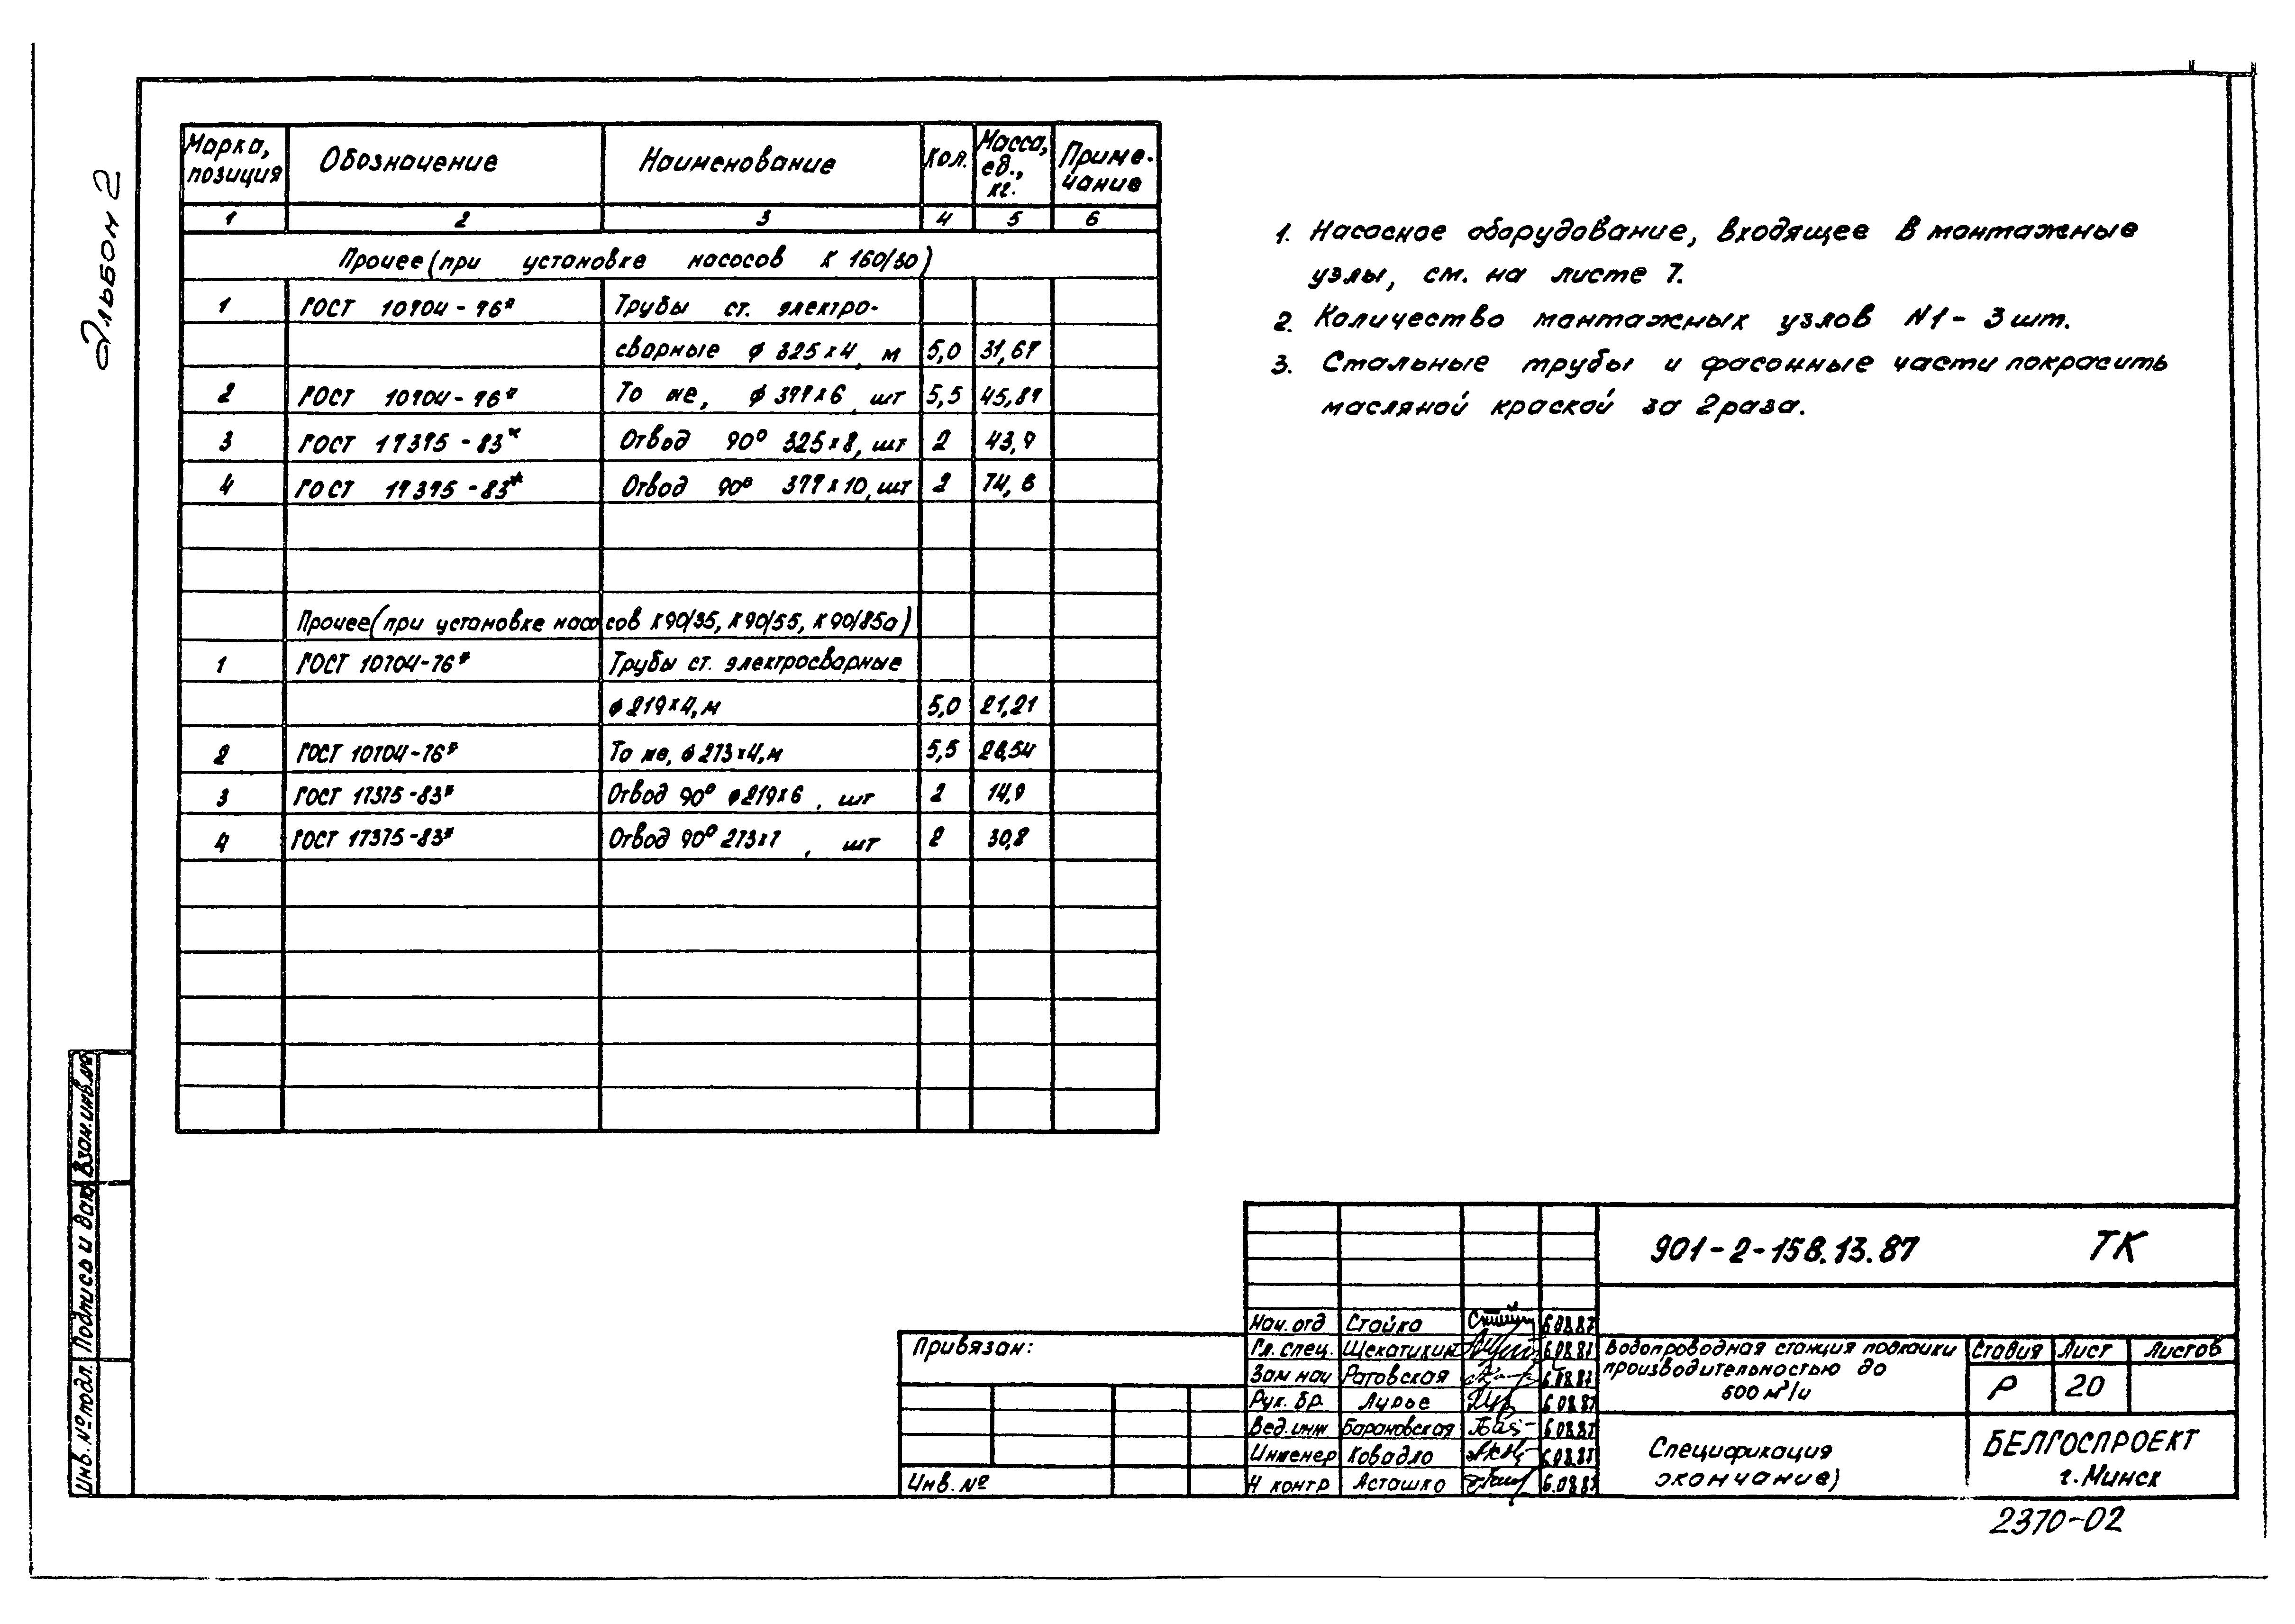 Альбом 2
Марка, позиция | Обозначение | Наименование | Кол. | Масса, ед., кг. | Приме- чание
1 | 2 | 3 | 4 | 5 | 6
Прочее (при установке насосов К 160/30)
1 | ГОСТ 10704-76* | Трубы ст. электро-
сварные ф 325х4, м | 5,0 | 31,67
2 | ГОСТ 10704-76* | То же, ф 377х6, шт | 5,5 | 45,87
3 | ГОСТ 17375-83* | Отвод 90° 325х8, шт | 2 | 43,9
4 | ГОСТ 17375-83* | Отвод 90° 377х10, шт | 2 | 74,6
Прочее (при установке насосов К90/35, К90/55, К90/85а)
1 | ГОСТ 10704-76* | Трубы ст. электросварные
ф 219х4, м | 5,0 | 21,21
2 | ГОСТ 10704-76* | То же, ф 273х4, м | 5,5 | 26,54
3 | ГОСТ 17375-83* | Отвод 90° ф219х6, шт | 2 | 14,9
4 | ГОСТ 17375-83* | Отвод 90° 273х7, шт | 2 | 30,8
1. Насосное оборудование, входящее в монтажные
узлы, см. на листе 7.
2. Количество монтажных узлов N1 - 3 шт.
3. Стальные трубы и фасонные части покрасить
масляной краской за 2 раза.
Взам.инв.№
Подпись и дат
Инв.№ подл.
Привязан:
Инв. №
901-2-158.13.87 ТК
Нач. отд | Стойко | 6.08.87
Гл. спец. | Щекатихин | 6.08.87
Зам нач | Ратовская | 6.08.87
Рук. бр. | Лурье | 6.08.87
Вед. инж | Барановская | 6.08.87
Инженер | Ковадло | 6.08.87
Н контр | Асташко | 6.08.87
Водопроводная станция подкачки
производительностью до
600 м³/ч
Стадия | Лист | Листов
Р | 20
Спецификация
окончание)
БЕЛГОСПРОЕКТ
г. Минск
2370-02